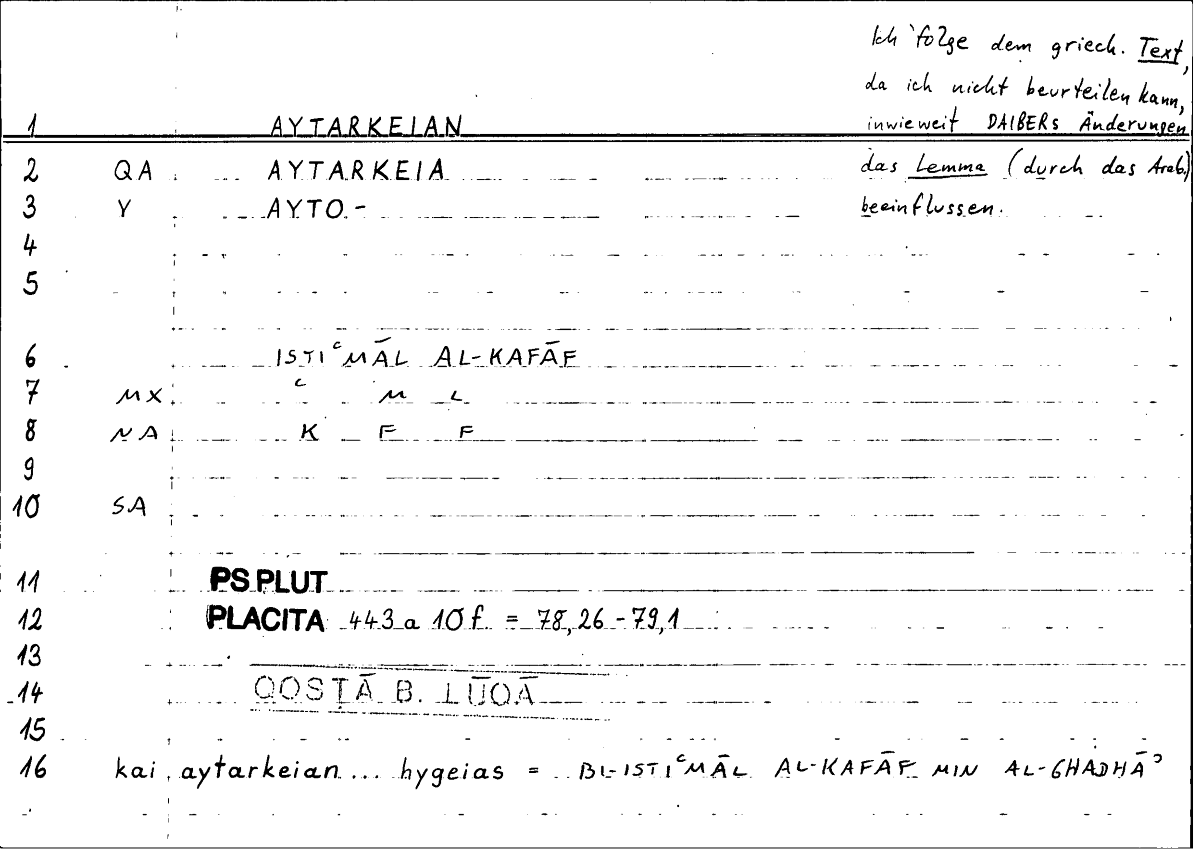 Ich folge dem griech. Text,
da ich nicht beurteilen kann,
inwieweit DAIBERs Änderungen
das Lemma (durch das Arab.)
beeinflussen.
1 AYTARKEIAN
2 QA AYTARKEIA
3 Y AYTO-
4
5
6 ISTIᶜMĀL AL-KAFĀF
7 MX ᶜ M L
8 NA K F F
9
10 SA
11 PS PLUT
12 PLACITA 443 a 10 f. = 78,26-79,1
13
14 QOSṬĀ B. LŪQĀ
15
16 kai aytarkeian... hygeias = BI-ISTIᶜMĀL AL-KAFĀF MIN AL-GHADHĀʾ